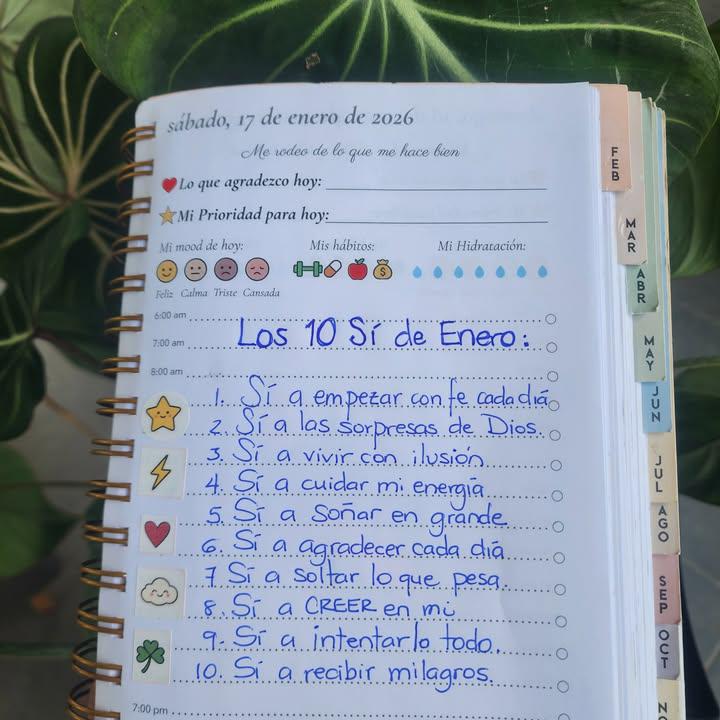 sábado, 17 de enero de 2026
Me rodeo de lo que me hace bien
Lo que agradezco hoy:
Mi Prioridad para hoy:
Mi mood de hoy: Mis hábitos: Mi Hidratación:
Feliz Calma Triste Cansada
6:00 am
Los 10 Sí de Enero:
7:00 am
8:00 am
1. Sí a empezar con fe cada día
2. Sí a las sorpresas de Dios.
3. Sí a vivir con ilusión
4. Sí a cuidar mi energía
5. Sí a soñar en grande
6. Sí a agradecer cada día
7 Sí a soltar lo que pesa.
8. Sí a CREER en mi
9. Sí a intentarlo todo.
10. Sí a recibir milagros.
7:00 pm
FEB
MAR
ABR
MAY
JUN
JUL
AGO
SEP
OCT